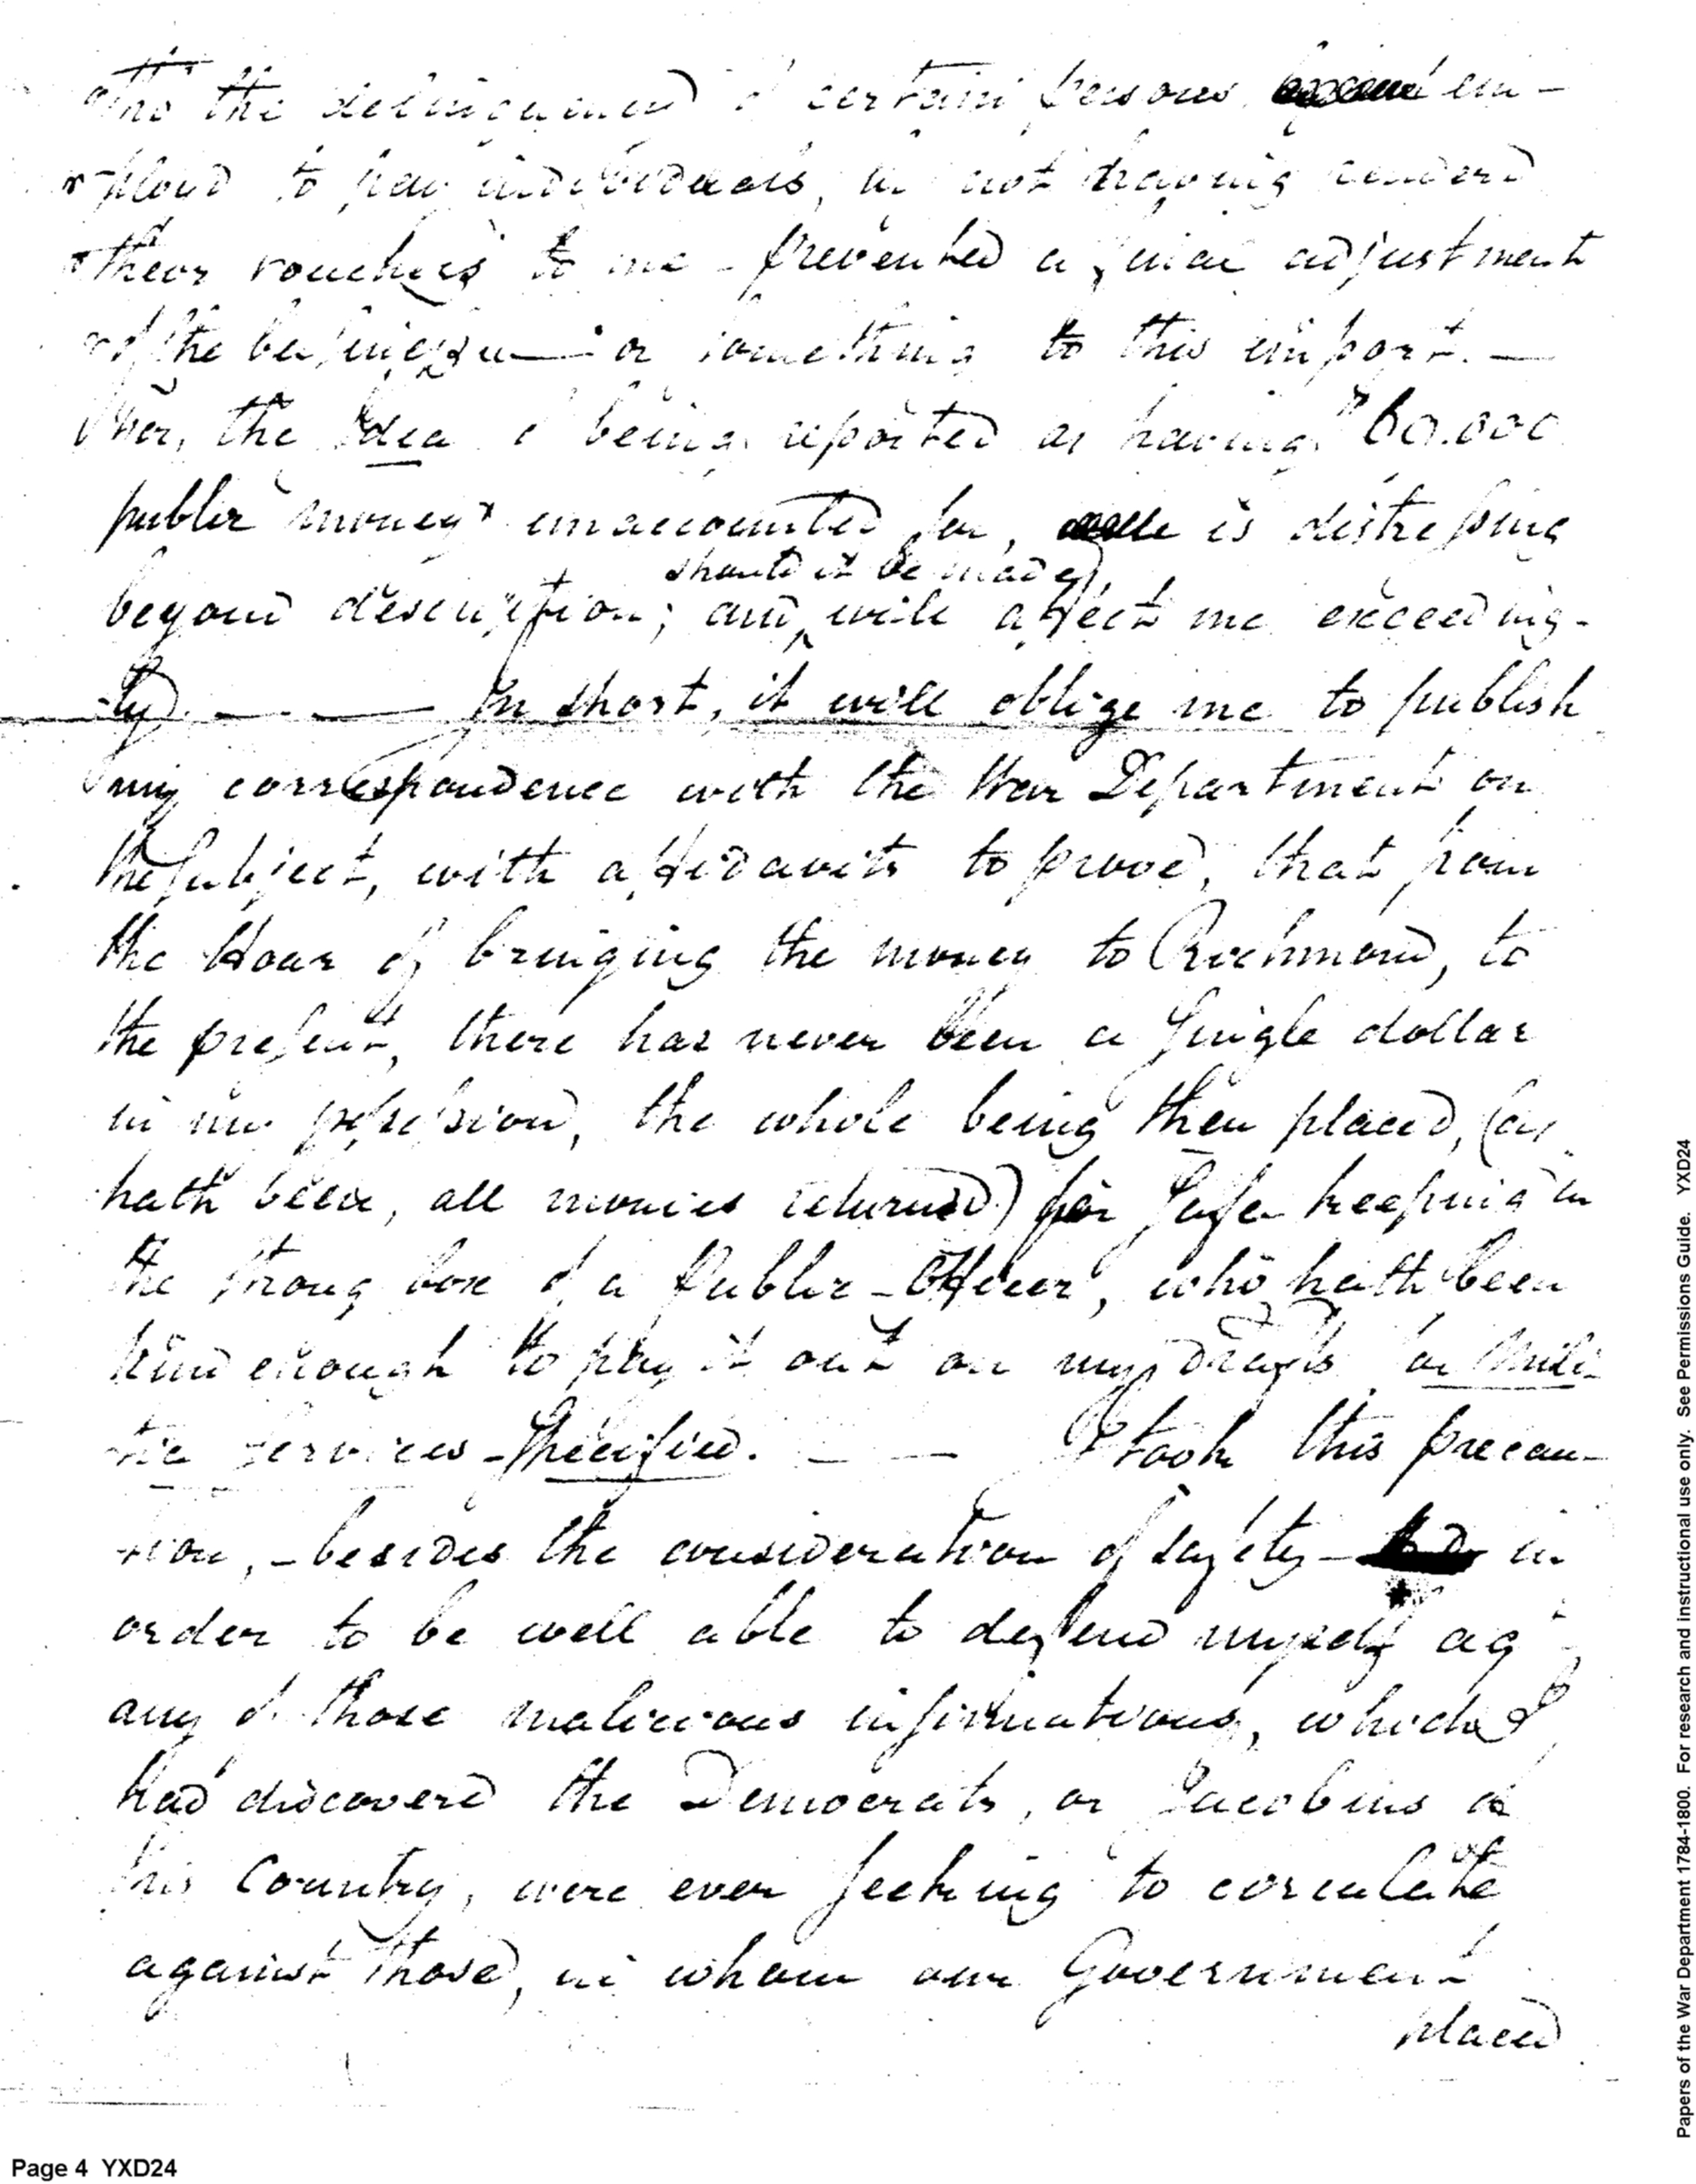 tho the delinquencies of certain persons em-
-ployd to pay individuals, in not having renderd
their vouchers to me - prevented a final adjustment
of the business - or something to this import. —
Sir, the Idea of being reported as having 60.000
public money unaccounted for, is distressing
should it be made,
beyond description; and will affect me exceeding-
-ly. — — In short, it will oblige me to publish
my correspondence with the War Department on
the subject, with affidavits to prove, that from
the Hour of bringing the money to Richmond, to
the present, there has never been a single dollar
in my possession, the whole being then placed, (as
hath been, all monies returned) for safe keeping in
the strong box of a Public-Officer, who hath been
kind enough to pay it out on my drafts for Mili-
-tia Services - specified. — — I took this precau-
-tion, - besides the consideration of safety - in
order to be well able to defend myself agt
any of those malicious informations, which I
had discovered the Democrats, or Jacobins of
this Country, were ever seeking to circulate
against those, in whom our Government
placed
Page 4 YXD24
Papers of the War Department 1784-1800. For research and instructional use only. See Permissions Guide. YXD24